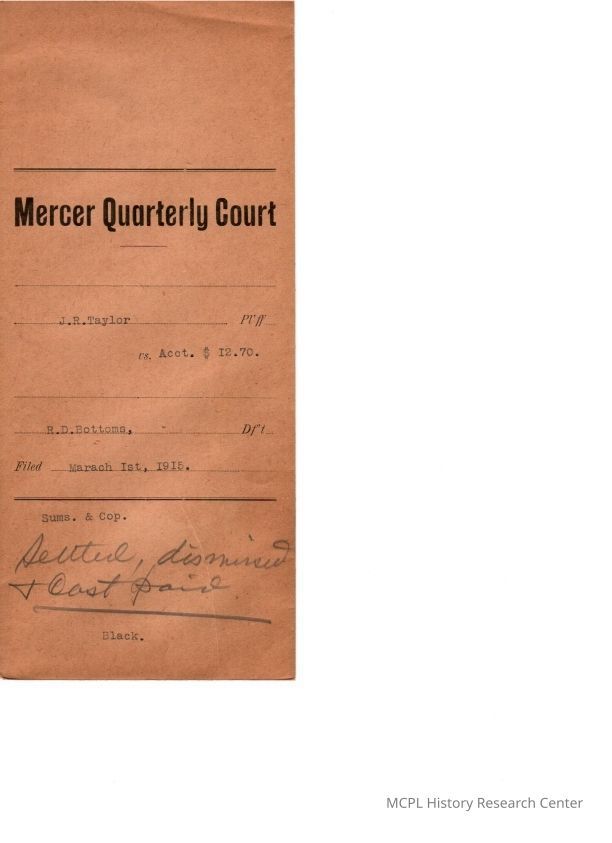 Mercer Quarterly Court
J.R.Taylor Pl'ff
vs. Acct. $ I2.70.
R.D.Bottoms, Df't
Filed Marach Ist, I9I5.
Sums. & Cop.
Settled, dismissed
& Cost paid
Black.
MCPL History Research Center